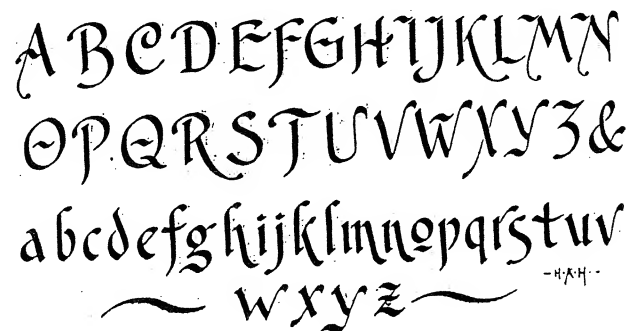 ABCDEFGHIJKLMN
OPQRSTUVWXYZ&
abcdefghijklmnopqrstuv
-H·A·H·-
wxyz